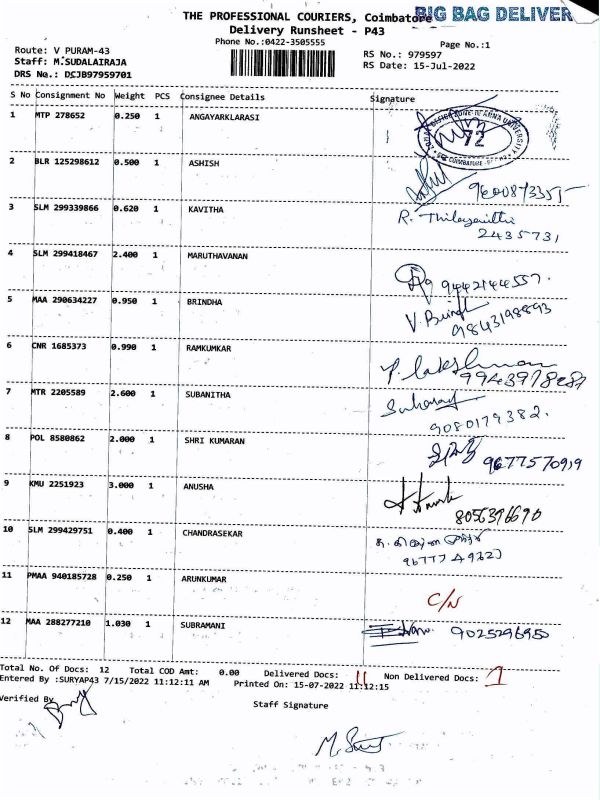 THE PROFESSIONAL COURIERS, Coimbatore
BIG BAG DELIVER
Delivery Runsheet - P43
Phone No.:0422-3505555
Page No.:1
Route: V PURAM-43
RS No.: 979597
Staff: M.SUDALAIRAJA
RS Date: 15-Jul-2022
DRS No.: DCJB97959701
S No Consignment No Weight PCS Consignee Details Signature
1 MTP 278652 0.250 1 ANGAYARKLARASI
72
2 BLR 125298612 0.500 1 ASHISH
9600873355
3 SLM 299339866 0.620 1 KAVITHA
2435731
4 SLM 299418467 2.400 1 MARUTHAVANAN
9442144557.
5 MAA 290634227 0.950 1 BRINDHA
9843198893
6 CNR 1685373 0.990 1 RAMKUMKAR
7 MTR 2205589 2.600 1 SUBANITHA
9080179382.
8 POL 8580862 2.000 1 SHRI KUMARAN
9677570919
9 KMU 2251923 3.000 1 ANUSHA
8056396690
10 SLM 299429751 0.400 1 CHANDRASEKAR
11 PMAA 940185728 0.250 1 ARUNKUMAR
C/N
12 MAA 288277210 1.030 1 SUBRAMANI
9025296950
Total No. Of Docs: 12 Total COD Amt: 0.00 Delivered Docs: 11 Non Delivered Docs: 1
Entered By :SURYAP43 7/15/2022 11:12:11 AM Printed On: 15-07-2022 11:12:15
Verified By
Staff Signature